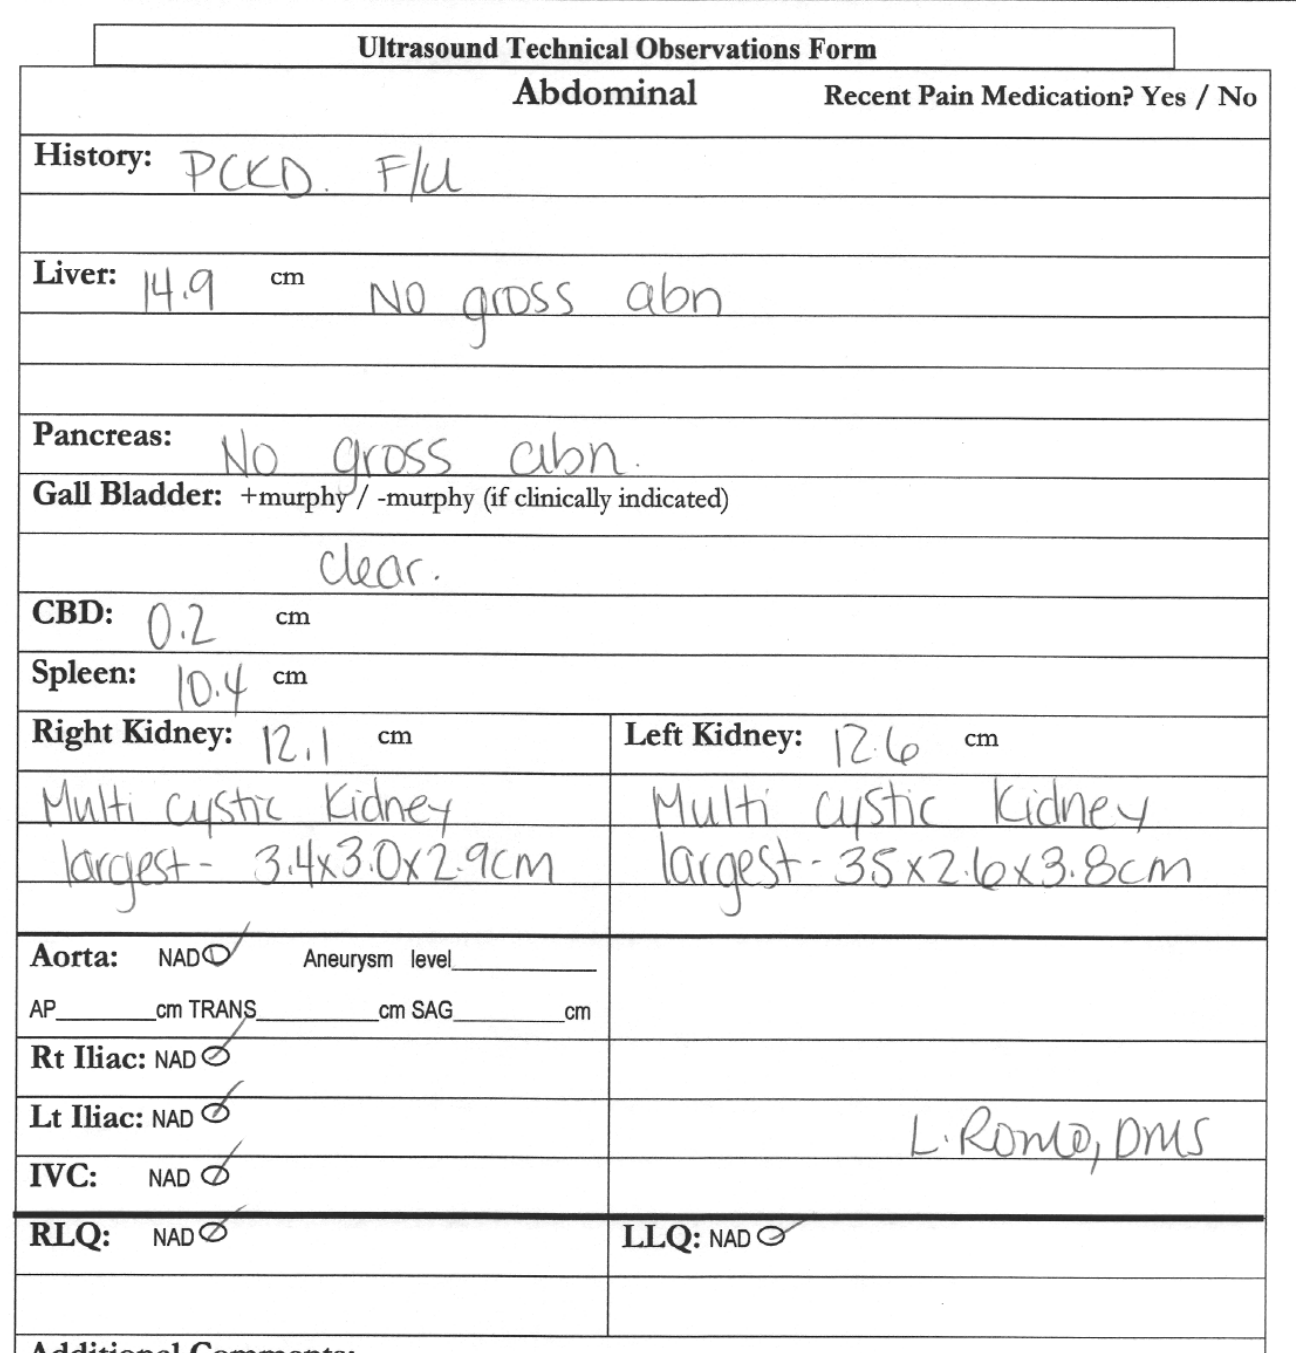 Ultrasound Technical Observations Form
Abdominal Recent Pain Medication? Yes / No
History: PCKD. F/U
Liver: 14.9 cm No gross abn
Pancreas: No gross abn.
Gall Bladder: +murphy / -murphy (if clinically indicated)
clear.
CBD: 0.2 cm
Spleen: 10.4 cm
Right Kidney: 12.1 cm Left Kidney: 12.6 cm
Multi cystic Kidney Multi cystic Kidney
largest - 3.4x3.0x2.9cm largest - 3.5x2.6x3.8cm
Aorta: NAD Aneurysm level
AP cm TRANS cm SAG cm
Rt Iliac: NAD
Lt Iliac: NAD
L. Romo, DMS
IVC: NAD
RLQ: NAD LLQ: NAD
Additional Comments: